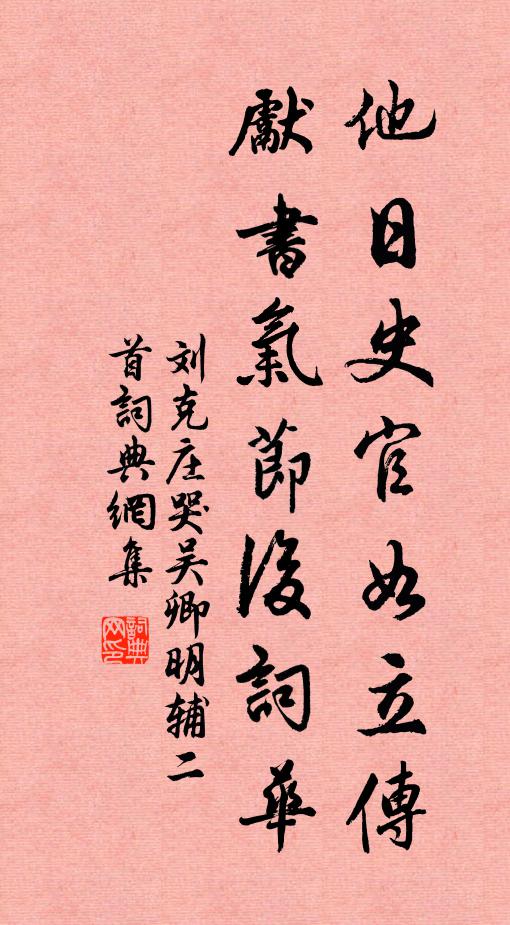 他日史官如立傳
獻書氣節後詞華
刘克庄哭吴卿明辅二
首詞典網集
詞典网印